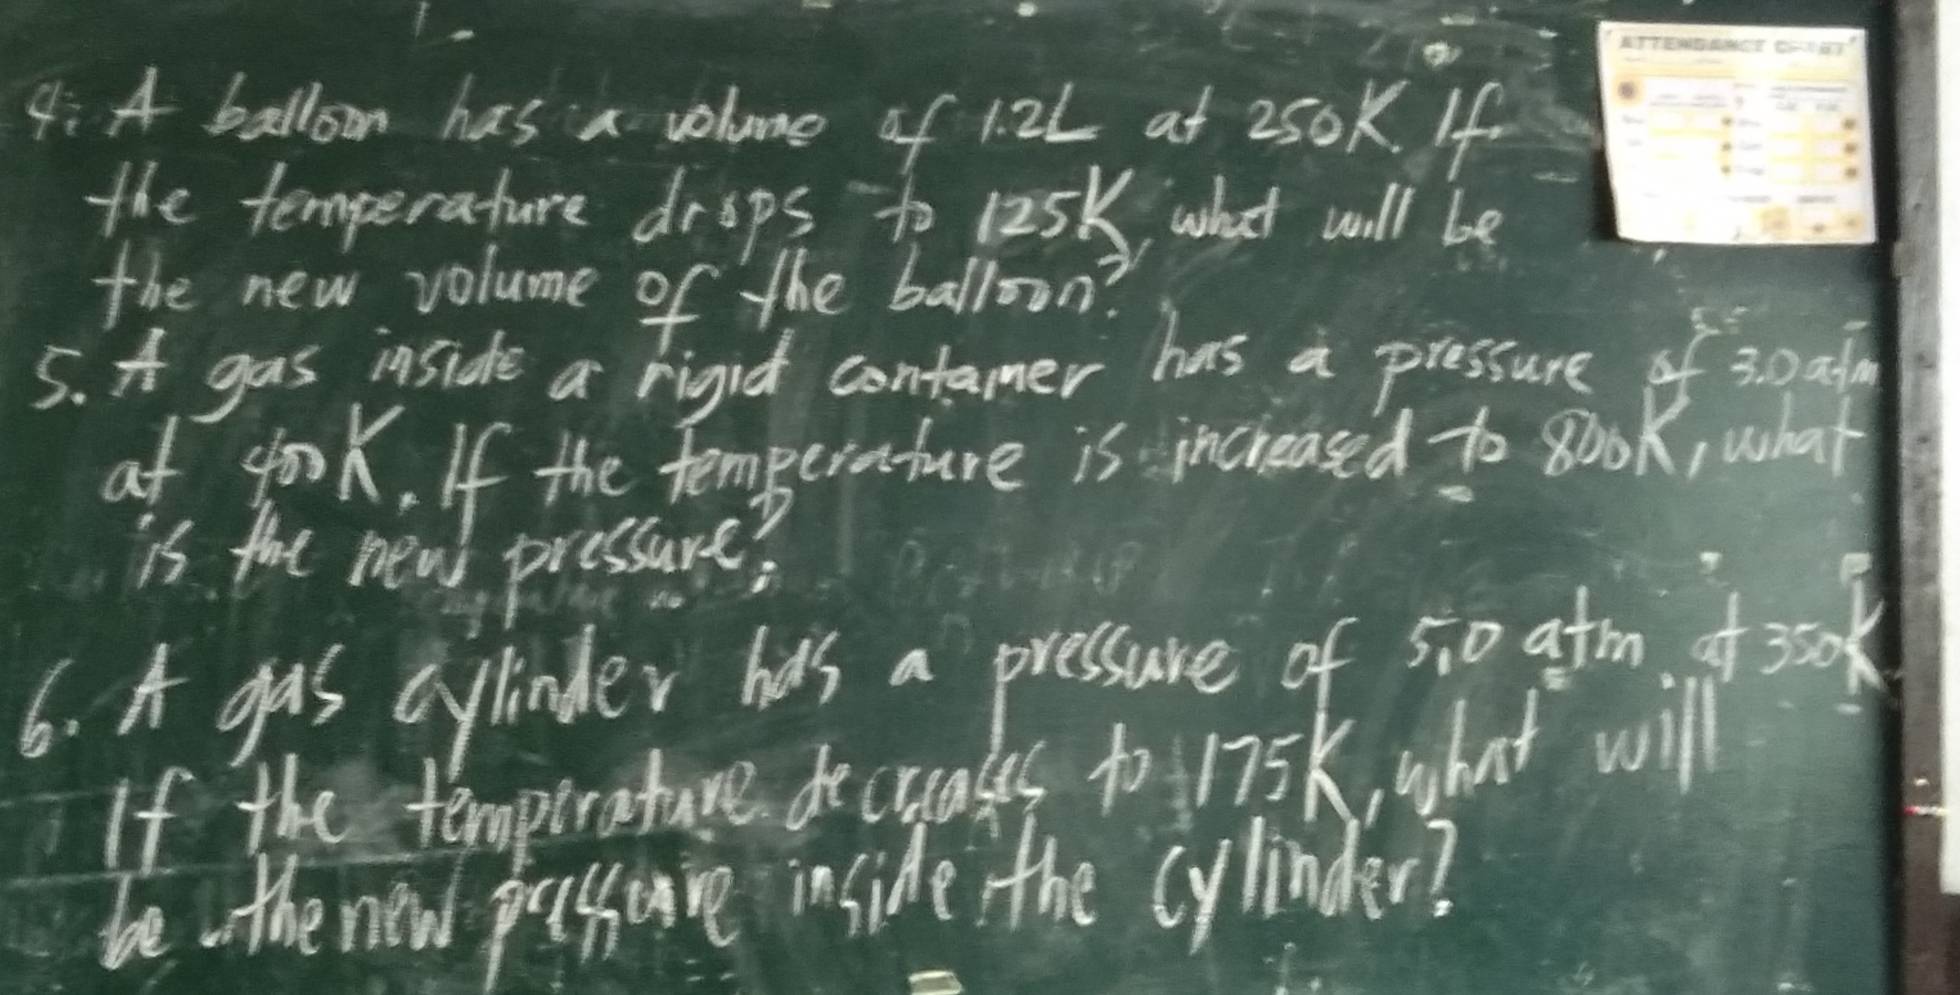 4. A balloon has a volume of 1.2L at 250K. If
the temperature drops to 125K, what will be
the new volume of the balloon?
5. A gas inside a rigid container has a pressure of 3.0 atm
at 400K. If the temperature is increased to 800K, what
is the new pressure?
6. A gas cylinder has a pressure of 5.0 atm at 350K
If the temperature decreases to 175K, what will
be the new pressure inside the cylinder?
ATTENDANCE CHART